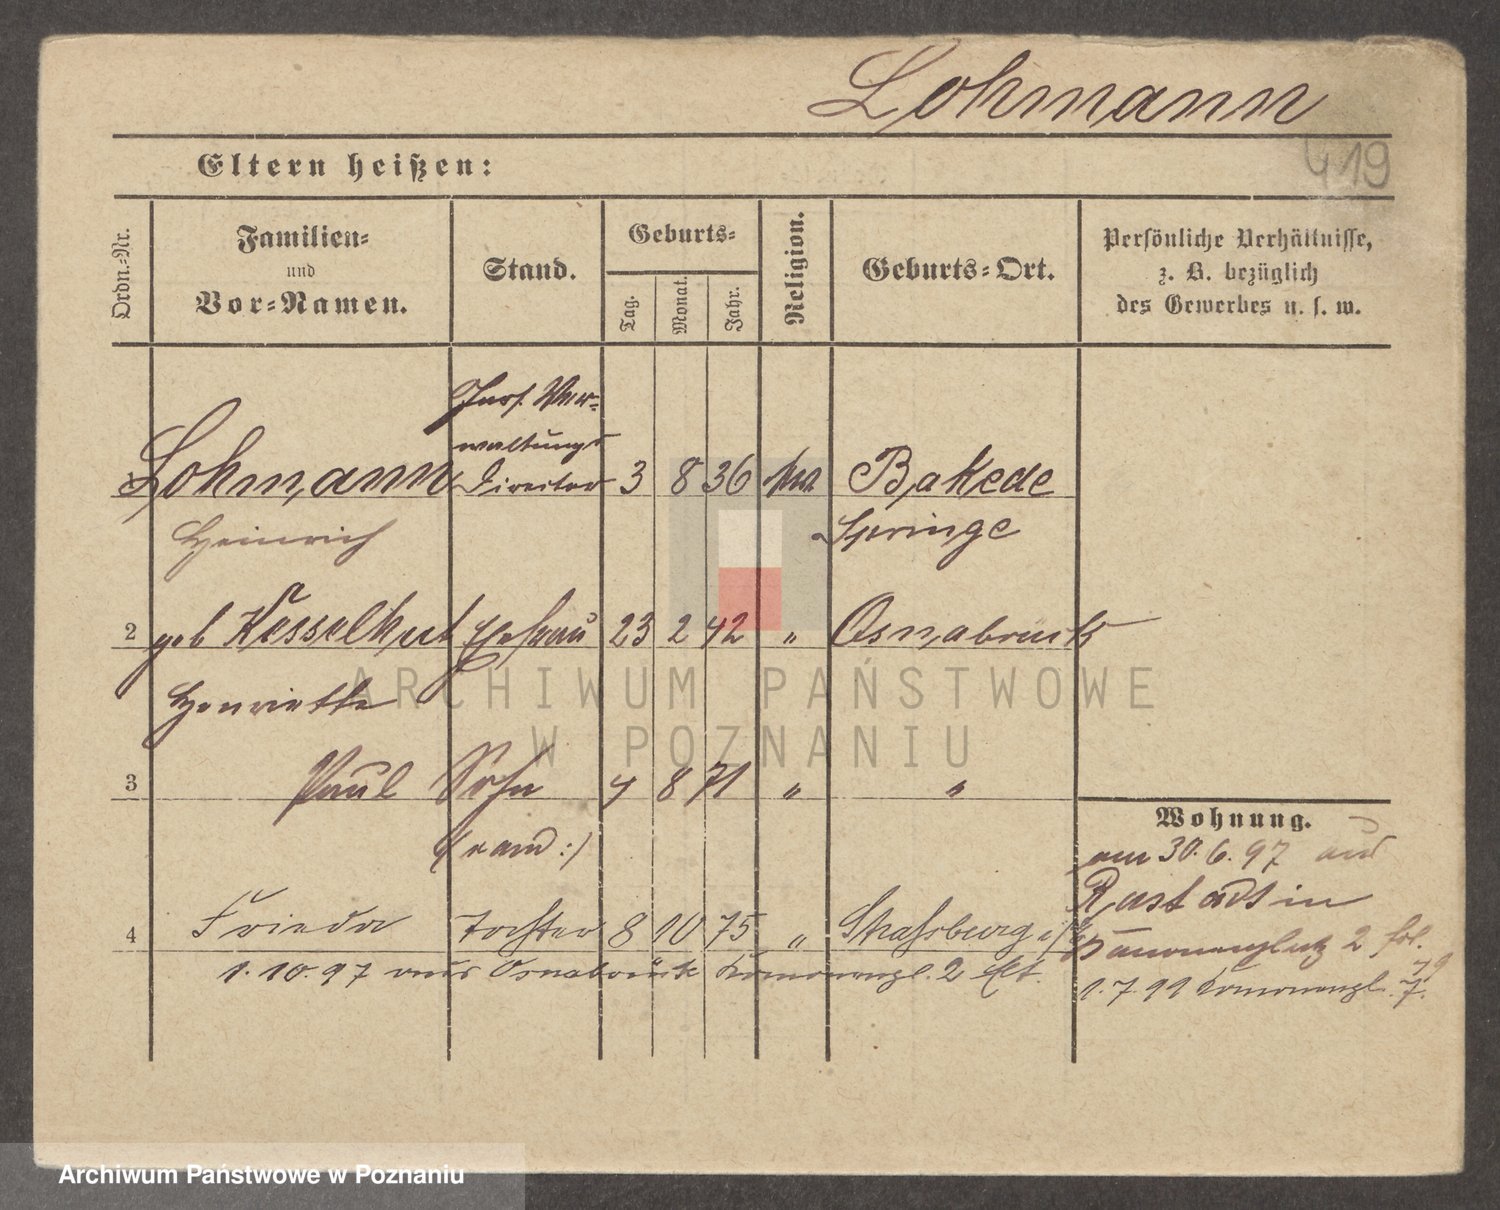 Lohmann
419
Eltern heißen:
Ordn.-Nr.
Familien-
und
Vor-Namen.
Stand.
Geburts-
Tag.
Monat.
Jahr.
Religion.
Geburts-Ort.
Persönliche Verhältnisse,
z. B. bezüglich
des Gewerbes u. s. w.
Ver-
waltungs
1 Lohmann Director 3 8 36 Bakede
Heinrich Springe
2 geb Kesselhut Ehefrau 23 2 42 " Osnabrück
Henriette
ARCHIWUM PAŃSTWOWE
W POZNANIU
3 Paul Sohn 4 8 71 " "
Wohnung.
(cand:)
am 30.6.97 aus
Rastadt in
4 Frieda Tochter 8 10 75 " Strassburg i/E
2
1.10.97 aus Osnabrück 2
1.7.99 7.
Archiwum Państwowe w Poznaniu